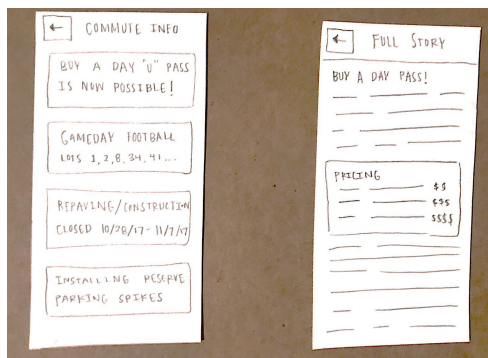 ← COMMUTE INFO
BUY A DAY "U" PASS
IS NOW POSSIBLE!
GAMEDAY FOOTBALL
LOTS 1, 2, 8, 34, 41...
REPAVING/CONSTRUCTION
CLOSED 10/28/17 - 11/7/17
INSTALLING RESERVE
PARKING SPIKES
← FULL STORY
BUY A DAY PASS!
PRICING
$$
$$$
$$$$